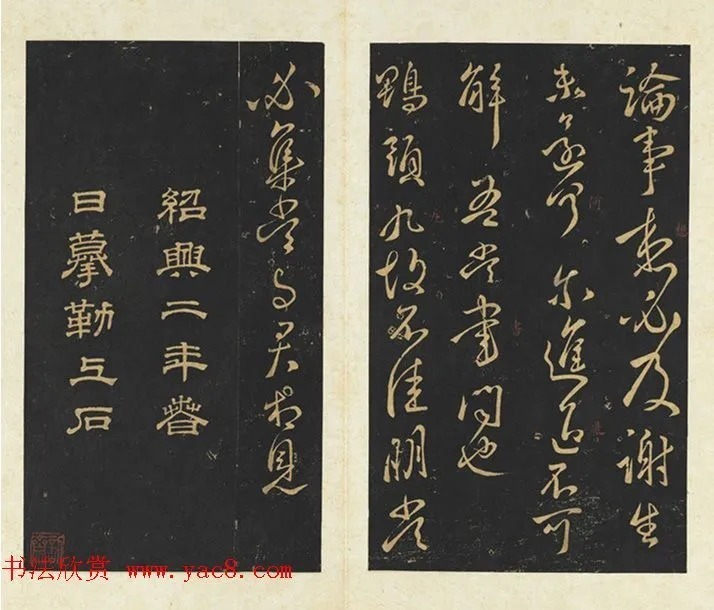 論事想必及謝生
未還何尔進退不可
解吾當書問也
鴨頭丸故不佳明當
必集當與君相見
紹興二年春
日摹勒上石
書法欣赏 www.yac8.com